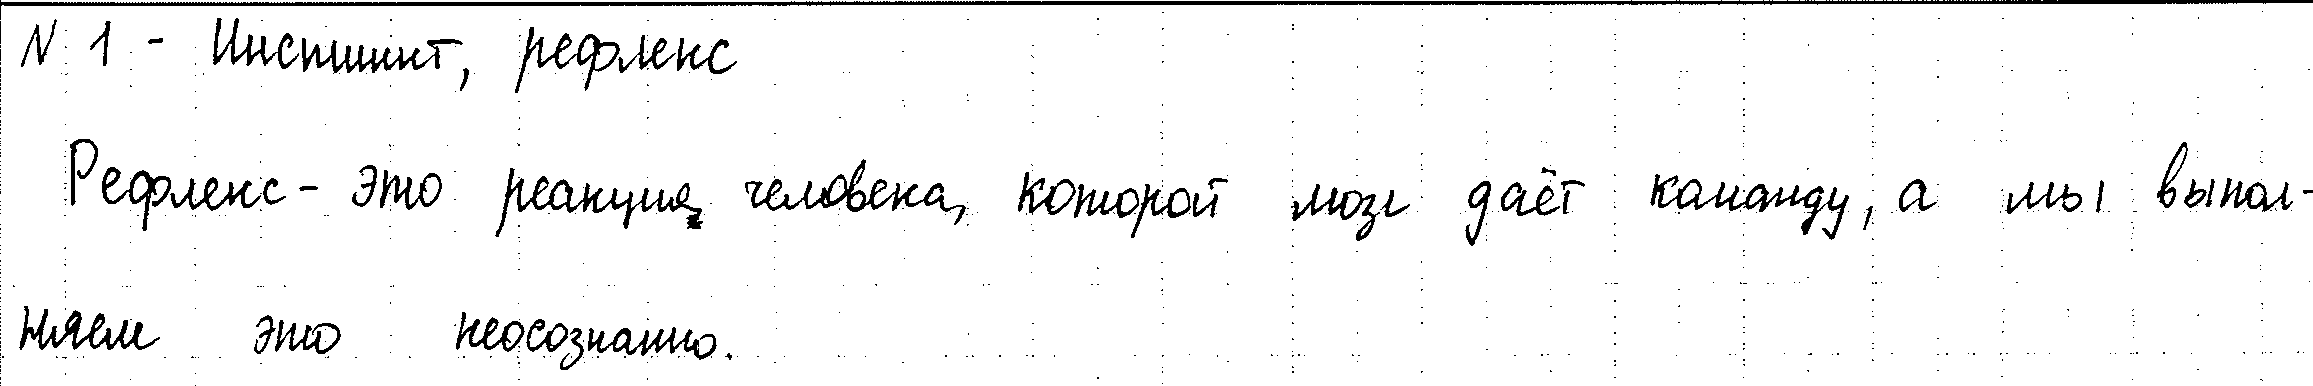 N 1 - Инстинкт, рефлекс
Рефлекс - это реакция человека, которой мозг даёт команду, а мы выпол-
няем это неосознанно.